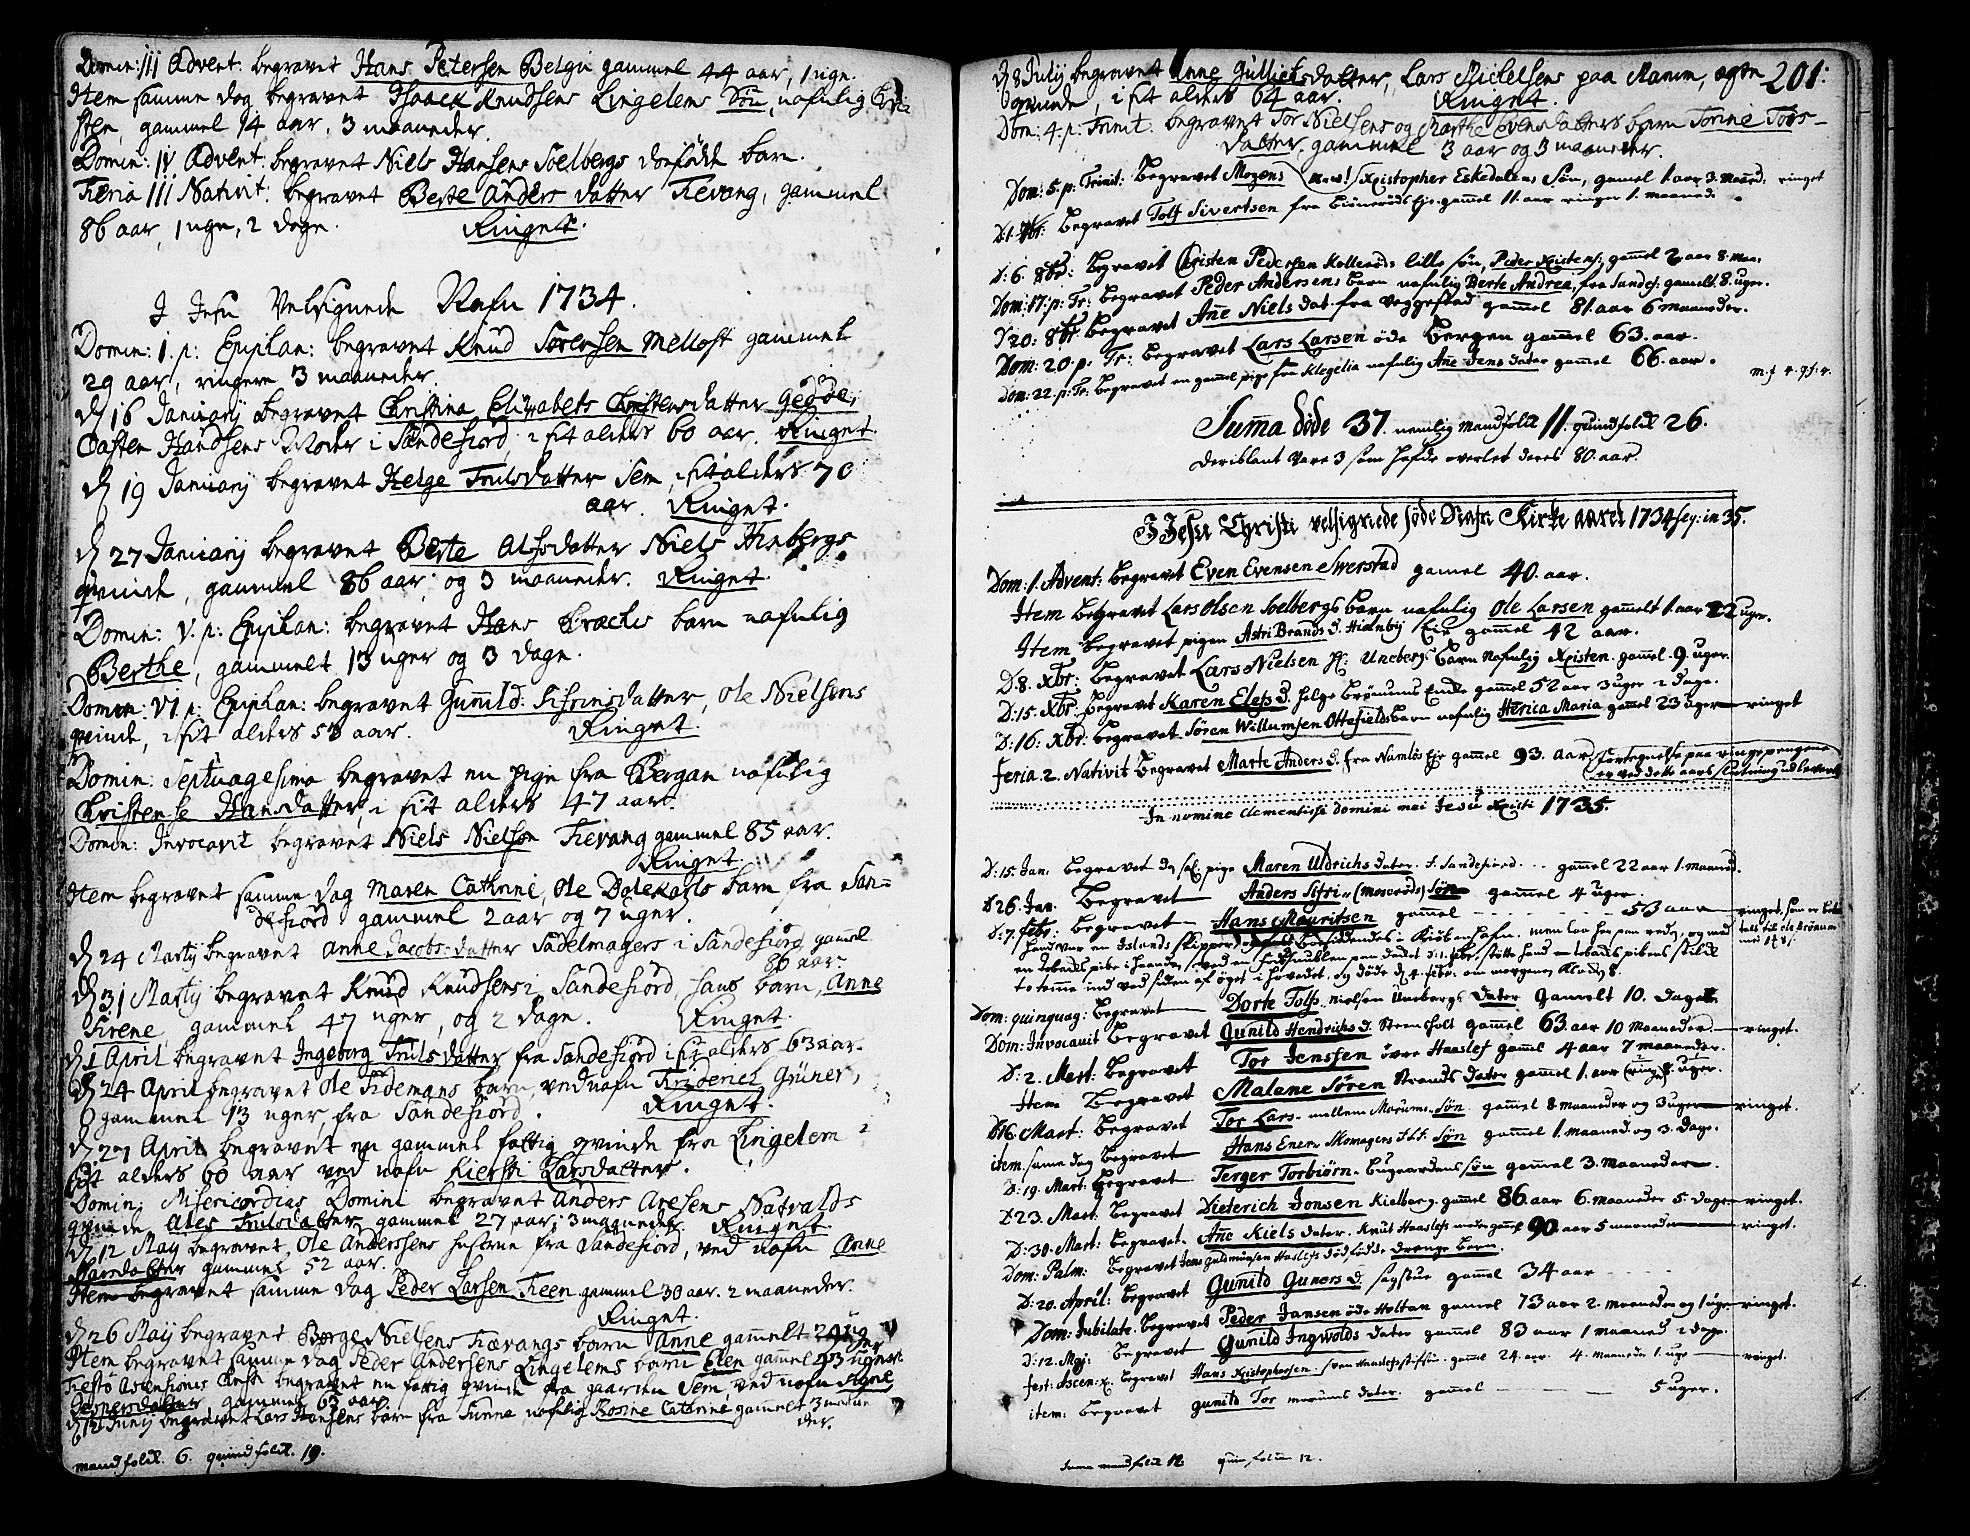 Domin: III Advent: begravet Hans Petersen Belgii gammel 44 aar, 1 uge.
Item samme dag begravet Isaack Knudsens Lingelems Søn, nafnlig
sten, gammel 14 aar, 3 maaneder.
Domin: IV Advent: begravet Niels Hansens Soelbergs dødfødt barn.
Feria III Nativit: begravet Berte Anders datter Fevang, gammel
86 aar, 1 uge, 2 dage. Ringet.
I Jesu Velsignede Nafn 1734.
Domin: 1. p: Epiphan: begravet Knud Sørensen Melløst gammel
29 aar, ringere 3 maaneder.
d 16 Januarij begravet Christina Elizabets Christensdatter
Casten Handsens Moder i Sandefiord, i sit alders 60 aar. Ringet.
d 19 Januarij begravet Helge Trulsdatter Sem, i sit alders 70
aar. Ringet.
d 27 Januarij begravet Berte Alfsdatter Niels Hinbergs
qvinde, gammel 86 aar, og 3 maaneder. Ringet.
Domin: V. p: Epiphan: begravet Hans barn nafnlig
Berthe, gammelt 13 uger og 3 dage.
Domin: VI p: Epiphan: begravet Gunild datter, Ole Nielsens
qvinde, i sit alders 58 aar. Ringet.
Domin: Septuagesima begravet en pige fra Bergan nafnlig
Christense Hansdatter, i sit alders 47 aar.
Domin: Invocavit begravet Niels Nielsen Fevang gammel 85 aar.
Ringet.
Item begravet samme dag Maren Cathrine, Ole barn fra San-
defiord gammel 2 aar og 7 uger.
d 24 Martij begravet Anne Jacobs-datter Sadelmagers i Sandefiord gammel
86 aar.
d 31 Martij begravet Knud Knudsens i Sandefiord hans barn, Anne
gammel 47 uger, og 2 dage. Ringet.
d 1 April begravet Ingeborg Trulsdatter fra Sandefiord i sit alders 63 aar.
d 24 April begravet Ole Tidemans barn, ved nafn Friderich Grüner,
gammel 13 uger, fra Sandefiord. Ringet.
d 27 April begravet en gammel fattig qvinde fra Lingelem i
sit alders 60 aar ved nafn Kiersti Larsdatter.
Domin: Misericordias Domini begravet Anders Aresens Natvalds
qvinde, Ales Trulsdatter gammel 27 aar, 3 maaneder. Ringet.
d 12 Maij begravet, Ole Anderssens hustrue fra Sandefiord, ved nafn Anne
Hansdatter gammel 52 aar.
Item begravet samme dag Peder Larsen Freen gammel 30 aar. 2 maaneder.
Ringet.
d 26 Maij begravet Børge Nielsens Fævangs barn Anne gammelt
Item begravet samme dag Peder Andersens Lingelems barn Elen gammel 43 uger
Festo Ascensionis Christi begravet en fattig qvinde fra gaarden Sem, ved nafn
gammel 63 aar
d 12 Junij begravet Lars Hansens barn fra nafnlig Rosine Cathrine gammelt 3 maane
der.
mandfolk. 6. quindfolk. 19.
201:
d 8 Julij begravet Anne Gullichsdatter, Lars Michelsens paa Ramm, ægte
qvinde, i sit alders 64 aar. Ringet.
Dom: 4. p: Trinit: begravet Tor Nielsens og Marthe Evensdatters barn Torine Tors-
datter, gammel 3 aar og 3 maaneder.
Dom: 5. p: Trinit: Begravet Mogens Xpistopher Eskedalens Søn, gammel 1 aar 3. Maaned. ringet
D: 1. 7br: Begravet Tolf Sivertsen fra gammel 11. aar ringer 1. maaned.
D: 6. 8br: Begravet Christen Pedersen lille søn, Peder Xpistens: gamel 2 aar 8. maa.
Dom: 17: p: Tr: Begravet Peder Andersens Barn nafnlig Berte Andrea, fra Sandef: gamelt 8. uger.
D 20: 8br Begravet Ane Niels dat. fra Veggestad gamel 81. aar 6 maaneder.
Dom: 20. p: Tr: Begravet Lars Larsen øde Bergen gamel 63. aar.
Dom: 22. p: Tr: Begravet en gamel pige fra Klegelia nafnlig Ane Jens dater gamel 66. aar.
m. f 4. q. f. 4.
Suma døde 37. nemlig mandfolk 11. quindfolk 26.
Deriblant vare 3 som hafde overlet deres 80. aar.
I Jesu Christi velsignede søde Nafn Kirke aaret 1734 seq: in 35.
Dom: 1. Advent: Begravet Even Evensen Swerstad gamel 40. aar.
Item begravet Lars Olsen Soelbergs Barn nafnlig Ole Larsen gamelt 1. aar 22 uger.
Item begravet pigen Astri Brands d. Hiemby Eie gamel 42 aar.
D. 8. Xbr: Begravet Lars Nielsen Unebergs Barn nafnlig Xpisten. gamel 9. uger.
D: 15. Xbr: begravet Karen Elefs d. Helge Brønums Enke gamel 52 aar 3 uger 2 dage.
D: 16. Xbr: begravet Søren Willumsen Ottefields barn nafnlig Herica Maria gamel 23 uger ringet
Feria 2. Nativit Begravet Marte Anders d. fra Namløs Eie gamel 93. aar fortegnelse paa ringepengene
er ved dette aars slutning udleveret
In nomine clementisse domini mei Jesu Xpisti 1735.
D: 15. Jan: Begravet pige Maren Uldrichs dater. i. Sandefiord. gamel 22 aar 1. maaned.
D 26. Jan: Begravet Anders Sifri Søn gamel 4 uger.
D: 7. Febr: Begravet Hans Mauritsen gamel 53 aar ringet, som er beta
hand var en Islands skipper Boesiddendes i Kiøbenhafn. men laa her paa reden, og med
en tobachs pibe i haanden
og døde d. 4. febr. om morgenen Kloch 8.
Dom: quinquag: Begravet Dorte Tolfs Nielsen Unebergs dater Gamelt 10. dage
Dom: Invocavit Begravet Gunild Hendrichs d. Steensholt gamel 63. aar 10 Maaneder ringet.
D: 2. Mart: Begravet Tor Jenssen øvre Haaslef gamel 4 aar 7 maaneder.
Item Begravet Malene Søren Strands dater gamel 1. aar 8. uger.
D 16. Mart: Begravet Tor Lars. mellem Morums. Søn gamel 8 maaneder og 3 uger ringet.
item. same dag Begravet Hans Ener. Skomagers Søn gamel 1. maaned. og 3. dage.
D: 19. Mart: Begravet Terger Torbiørn. Bugaardens søn gamel 3. Maaneder
D 23. Mart. Begravet Dieterich Jonsen Kielberg. gamel 86. aar 6. maaneder 5. dage ringet.
D: 30. Mart: Begravet. Ane Kiels dater. Knut Haaslefs moder gamel 90 aar 5 maaneder ringet.
Dom: Palm: Begravet Jens Guldmunsen Haslefs dødfødde drenge Barn.
D: 20. April: Begravet Gunild Guners d. gamel 34 aar
Dom: Jubilate. Begravet Peder Jansen øde Holtan gamel 73 aar 2. maaneder og 1 uge ringet.
D: 12. Maj: Begravet Gunild Ingwolds dater gamel 83 aar 1 maaned 2 dage.
fest: Ascen: X. Begravet Hans Xpistophersen. gamel 24. aar. 4. maaneder 1. uge ringet.
item: Begravet gunild Tor morums dater. gamel 5 uger.
Suma mandfolck 12 quinfolcken 12.